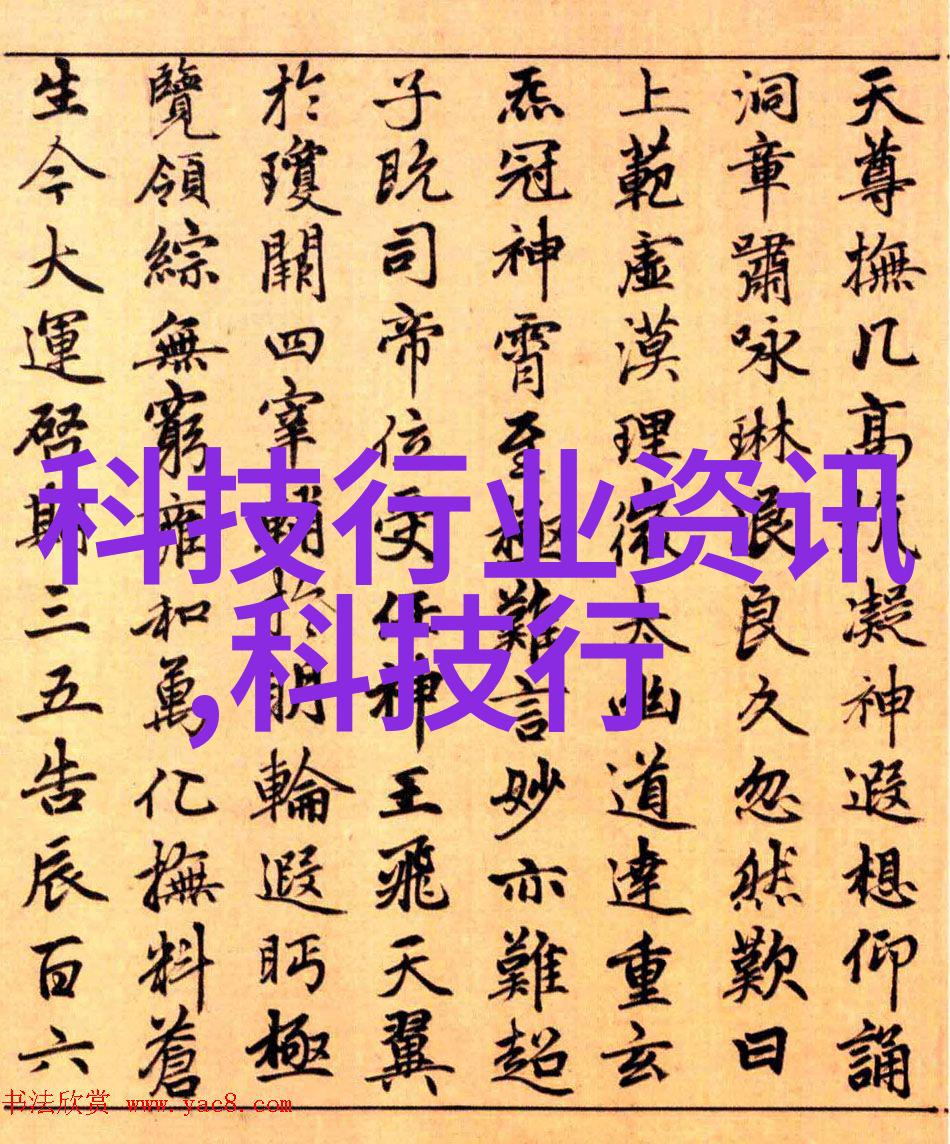 天尊撫几高抗凝神遐想仰誦
洞章嘯咏琳浪良久忽然歎曰
上範虛漠理微太幽道達重玄
炁冠神霄至極難言妙亦難超
子既司帝位受任神王飛天翼
於瓊闕四宰輔於明輪遐眄極
覽領綜無窮和萬化撫料蒼
生今大運啓期三五告辰百六
科技行业资讯
,科技行
书法欣赏 www.yac8.com